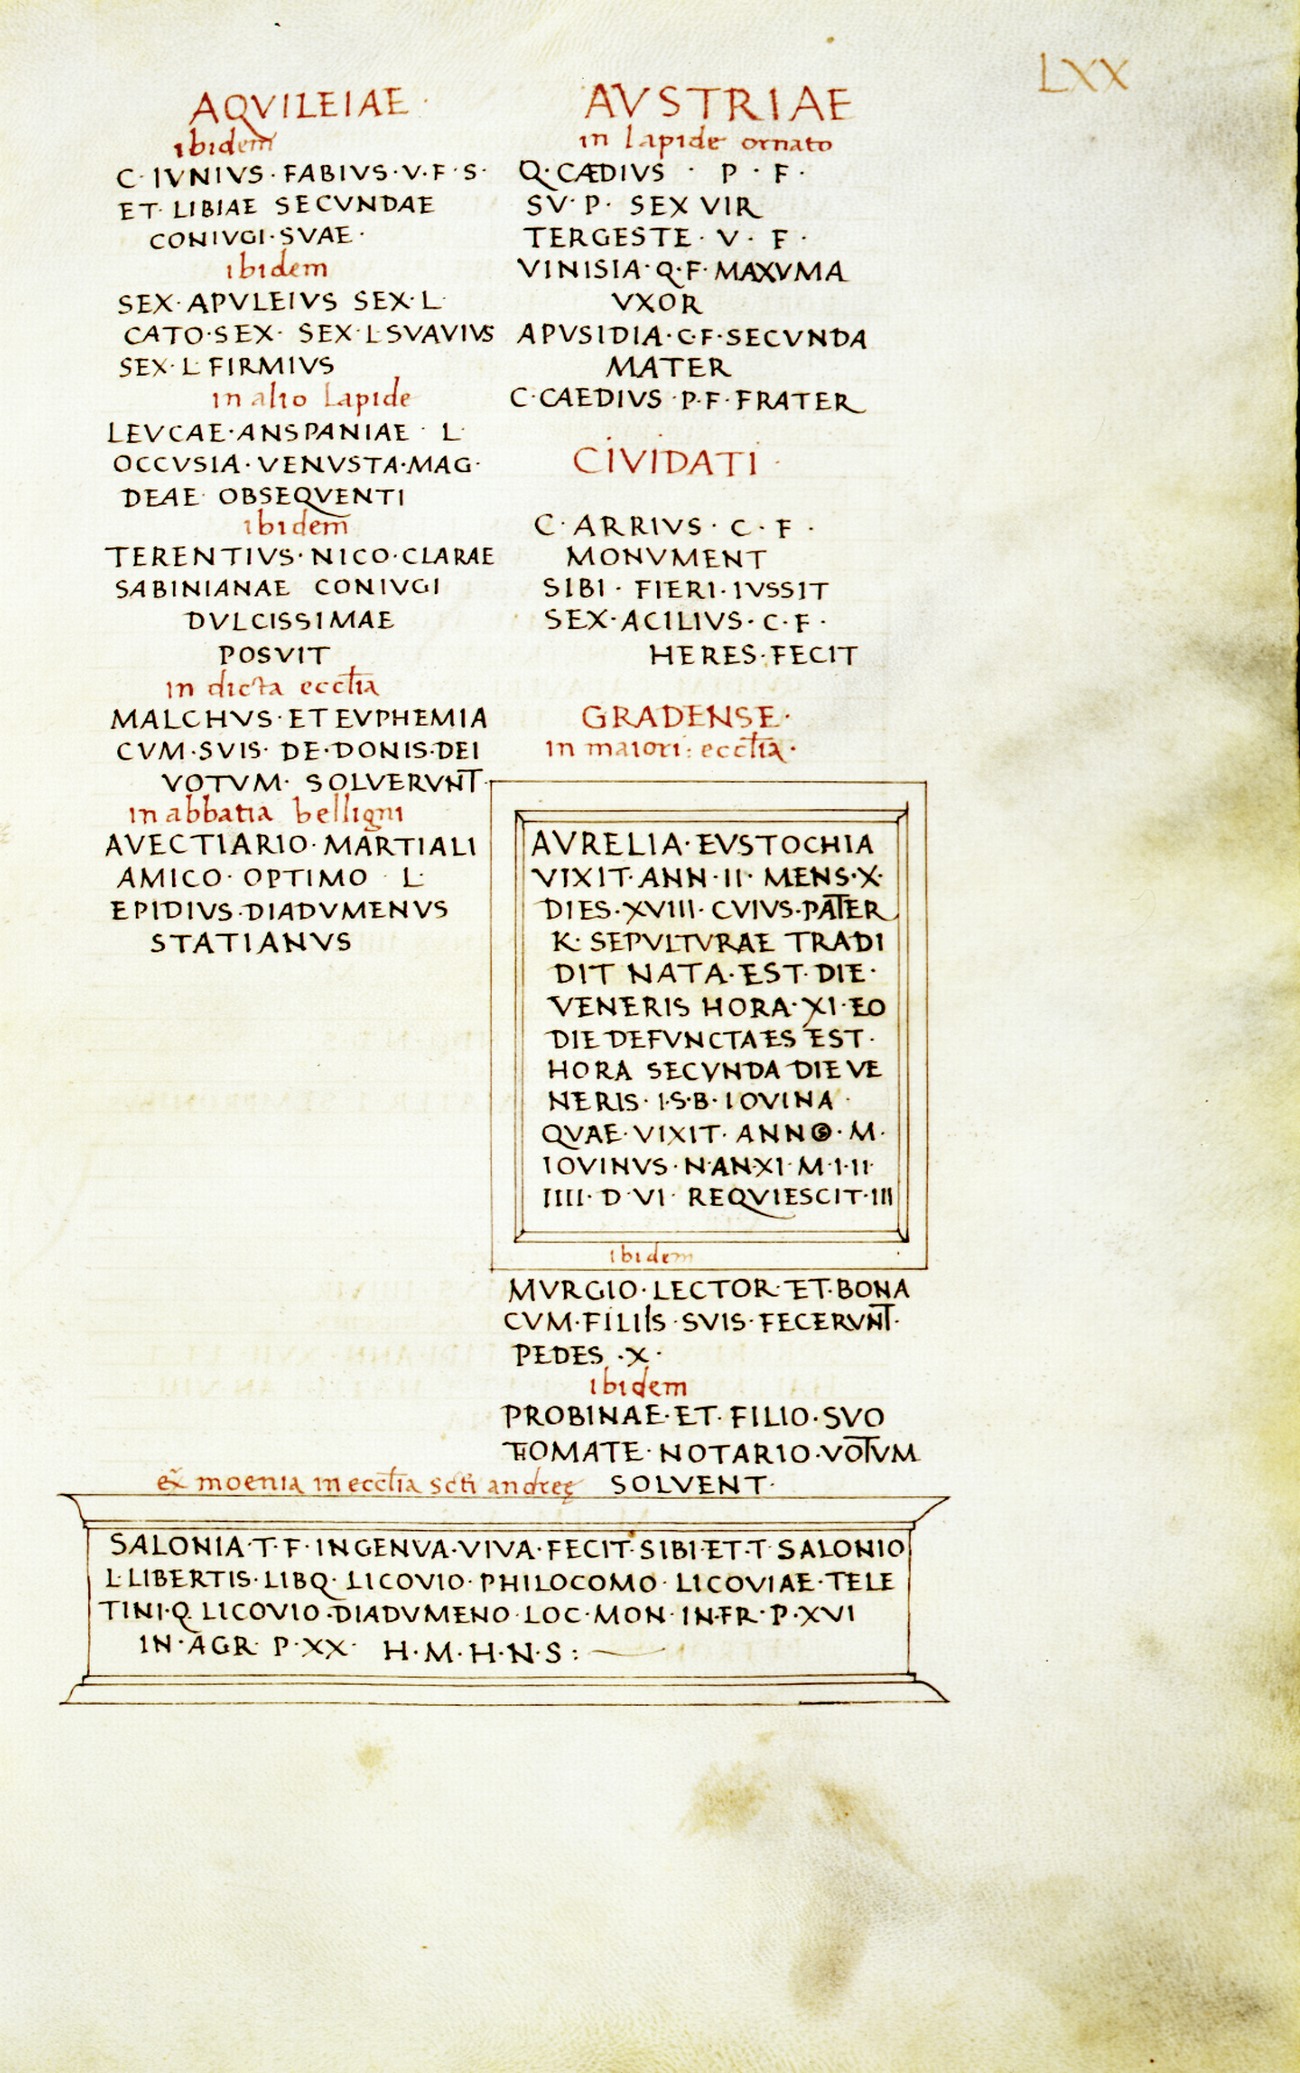 LXX
AQVILEIAE ·
ibidem
C · IVNIVS · FABIVS · V · F · S ·
ET · LIBIAE SECVNDAE
CONIVGI · SVAE ·
ibidem
SEX · APVLEIVS SEX · L ·
CATO · SEX · SEX · L SVAVIVS
SEX · L · FIRMIVS
in alio lapide
LEVCAE · ANSPANIAE · L ·
OCCVSIA · VENVSTA · MAG ·
DEAE · OBSEQVENTI
ibidem
TERENTIVS · NICO · CLARAE
SABINIANAE CONIVGI
DVLCISSIMAE
POSVIT
in dicta eccl̄ia
MALCHVS · ET EVPHEMIA
CVM · SVIS · DE · DONIS · DEI
VOTVM · SOLVERVNT̄ ·
in abbatia belligni
AVECTIARIO · MARTIALI
AMICO · OPTIMO L ·
EPIDIVS · DIADVMENVS
STATIANVS
AVSTRIAE
in lapide ornato
Q · CÆDIVS · P · F ·
SV · P · SEX VIR
TERGESTE · V · F ·
VINISIA · Q · F · MAXVMA
VXOR
APVSIDIA · C · F · SECVNDA
MATER
C · CAEDIVS · P · F · FRATER
CIVIDATI ·
C · ARRIVS · C · F ·
MONVMENT
SIBI · FIERI · IVSSIT
SEX · ACILIVS · C · F ·
HERES · FECIT
GRADENSE ·
in maiori : eccl̄ia ·
AVRELIA · EVSTOCHIA
VIXIT · ANN · II · MENS · X ·
DIES · XVIII · CVIVS · PAT̄ER
K · SEPVLTVRAE TRADI
DIT NATA · EST · DIE ·
VENERIS HORA · XI · EO
DIE DEFVNCTAES EST ·
HORA SECVNDA DIE VE
NERIS · I · S · B · IOVINA ·
QVAE · VIXIT · ANN · M ·
IOVINVS · N · AN · XI · M · I · II ·
IIII · D · VI · REQVIESCIT · III
ibidem
MVRGIO · LECTOR · ET · BONA
CVM · FILIIS · SVIS · FECERVNT̄ ·
PEDES · X ·
ibidem
PROBINAE · ET · FILIO · SVO
THOMATE · NOTARIO · VOT̄VM
SOLVENT ·
ex̄ moenia in eccl̄ia sc̄ti andreę
SALONIA · T · F · INGENVA · VIVA · FECIT · SIBI · ET · T · SALONIO
L · LIBERTIS · LIBQ · LICOVIO · PHILOCOMO · LICOVIAE · TELE
TINI · Q · LICOVIO · DIADVMENO · LOC · MON · IN · FR · P · XVI
IN · AGR · P · XX · H · M · H · N · S :